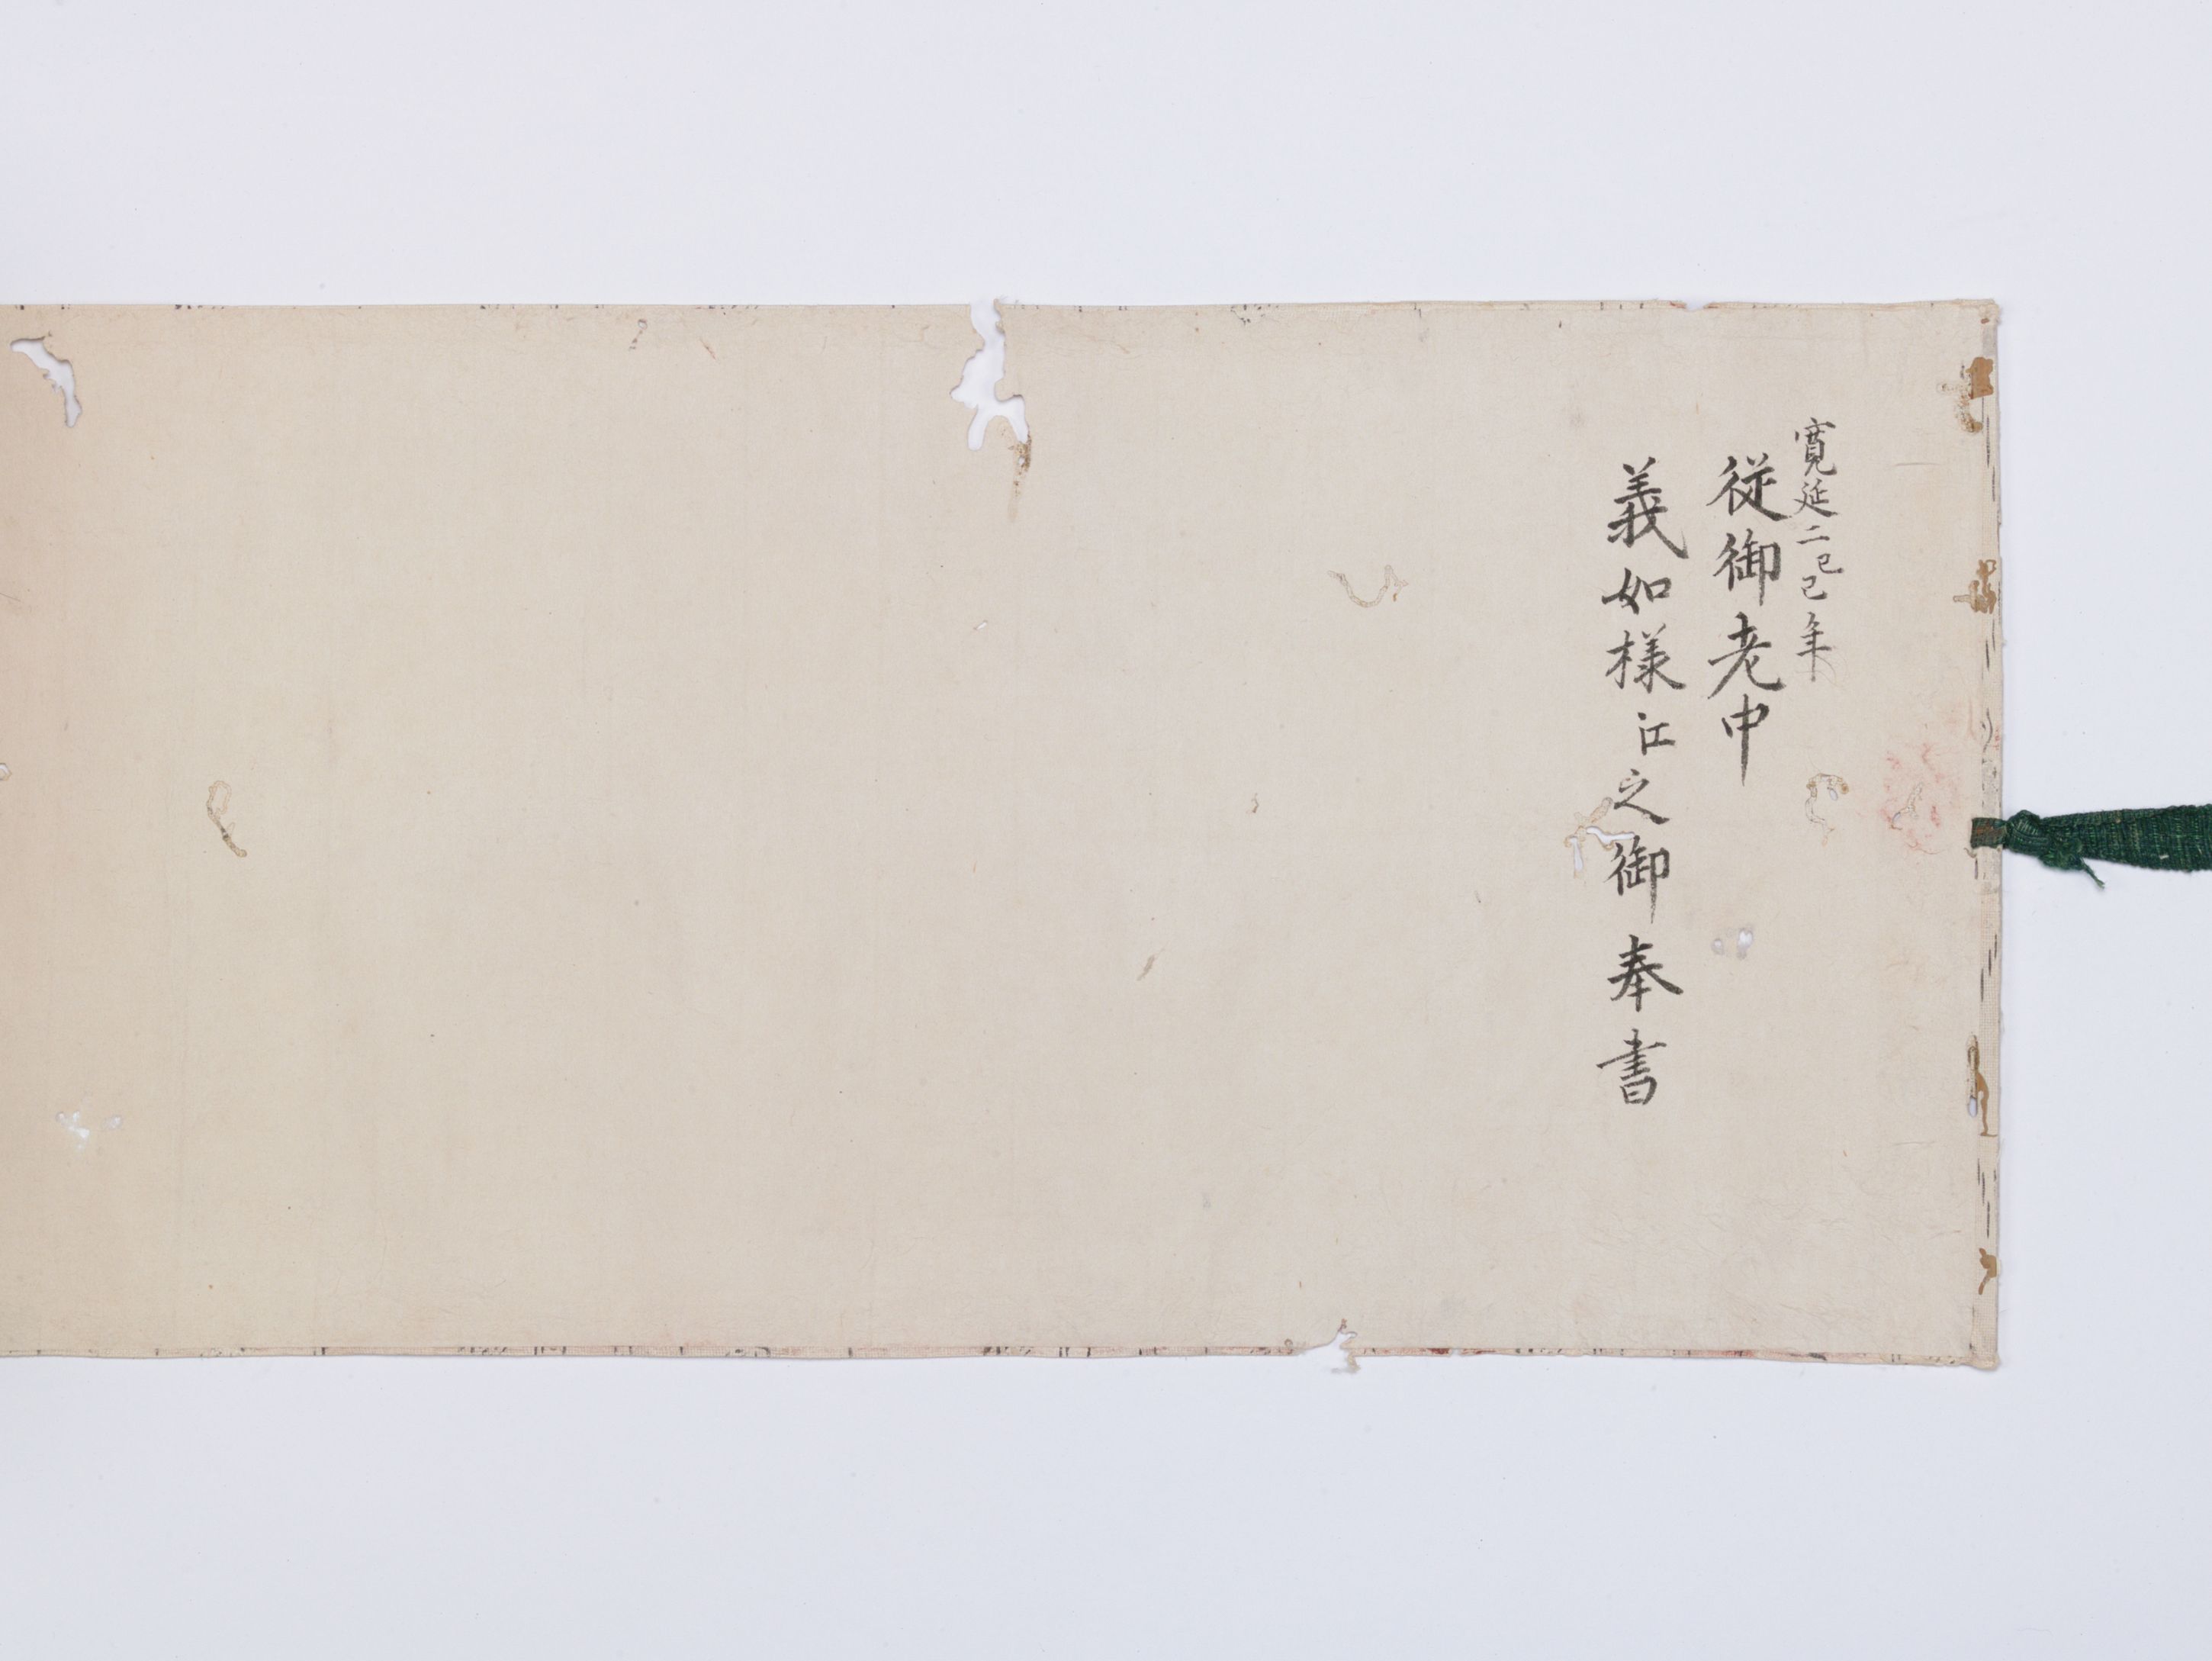 寛延二己巳年
従御老中
義如様江之御奉書